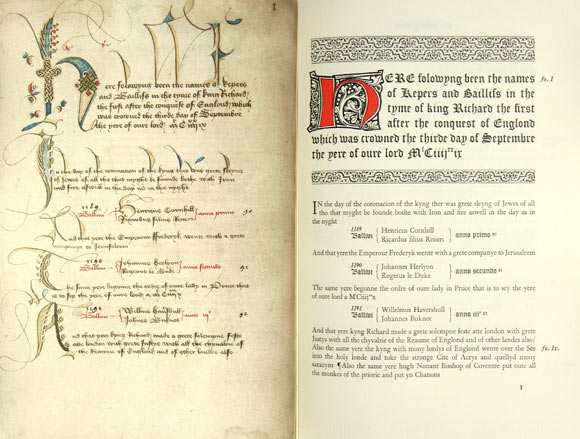 1
Here folowyng been the names of kepers
and Baillifs in the tyme of king Richard
the first after the conquest of Englond which
was crowned the thirde day of Septembre
the yere of oure lord
In the day of the coronacion of the kyng ther was grete sleyng
of Jewes of all tho that myght be founde bothe with Iron
and fire aswell in the day as in the nyght
1189
Ballivi Henricus Cornhill
Ricardus filius Reneri anno primo
And that yere the Emperour Frederyk wente with a grete
companye to Jerusaleem
1190
Ballivi Johannes Herlyon
Rogerus le Duke anno secundo 91
The same yere begonne the ordre of oure lady in Pruce that is
to sey the yere of oure lord a
1191
Ballivi
Johannes anno iij 92
And that yere kyng Richard made a grete solempne feste
atte london with grete Justys with all the chyvalrie of
the Reaume of England and of other landes also
HERE folowyng been the names fo. 1
of Kepers and Baillifs in the
tyme of king Richard the first
after the conquest of Englond
which was crowned the thirde day of Septembre
the yere of oure lord MˡCiiijˣˣix
IN the day of the coronacion of the kyng ther was grete sleyng of Jewes of all
tho that myght be founde bothe with Iron and fire aswell in the day as in
the nyght
1189
Ballivi { Henricus Cornhill
Ricardus filius Reneri } anno primo
And that yere the Emperour Frederyk wente with a grete companye to Jerusaleem
1190
Ballivi { Johannes Herlyon
Rogerus le Duke } anno secundo
The same yere begonne the ordre of oure lady in Pruce that is to sey the yere
of oure lord a MˡCiiijˣˣx
1191
Ballivi { Willelmus Havershull
Johannes Buknot } anno iijº
And that yere kyng Richard made a grete solempne feste atte london with grete
Justys with all the chyvalrie of the Reaume of England and of other landes also/
Also the same yere the kyng with many lordys of England wente over the See fo. 1v.
into the holy londe and toke the stronge Cite of Acrys and quellyd many
sarazyns ¶Also the same yere hugh Nonant Bisshop of Coventre put oute all
the monkes of the priorie and put yn Chanons
1